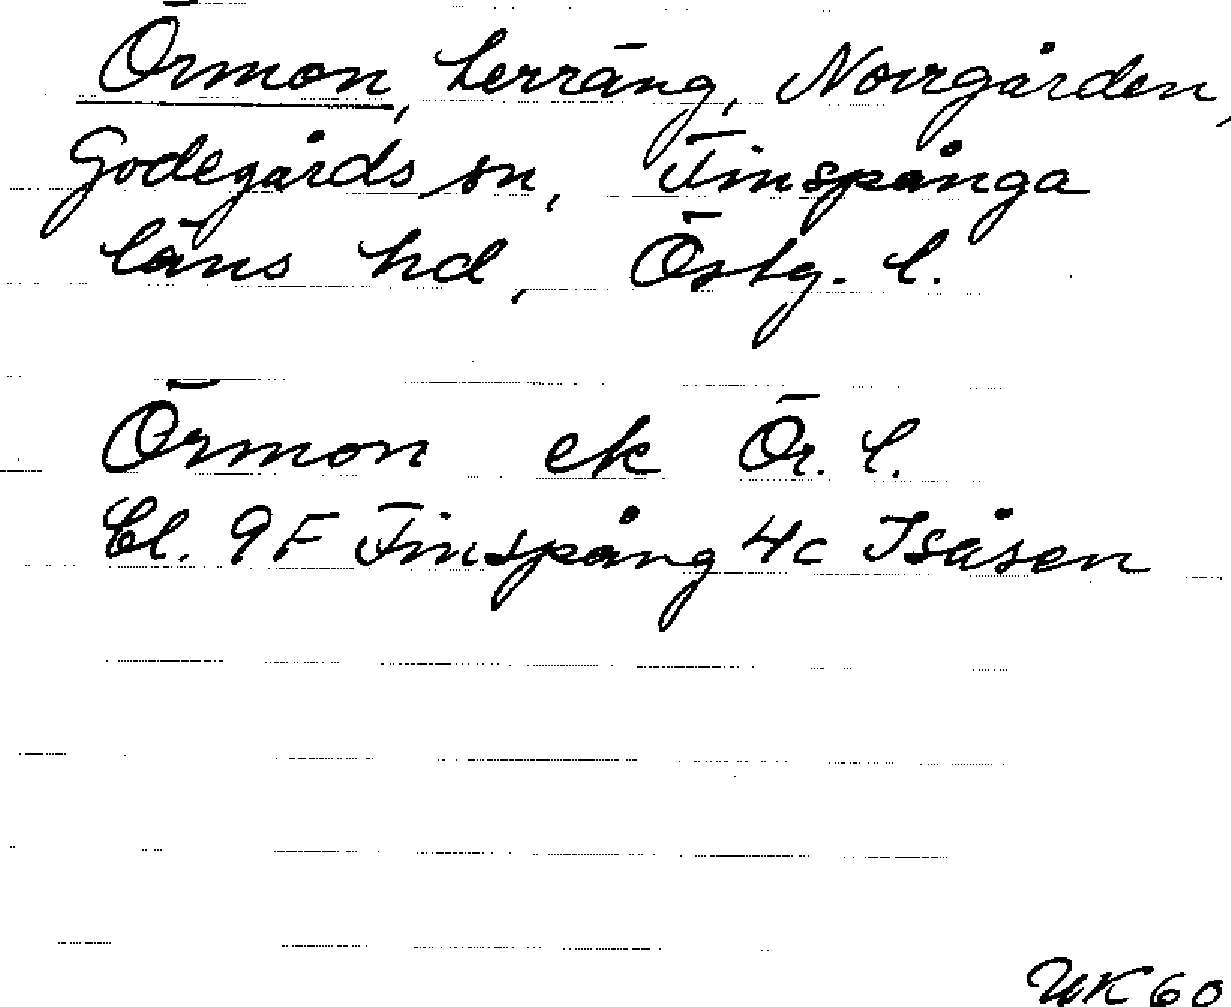 Örmon, terräng, Norrgården,
Godegårds sn, Finspånga
läns hd, Östg. l.
Örmon ek Ör. l.
Bl. 9F Finspång 4c Isåsen
UK 60